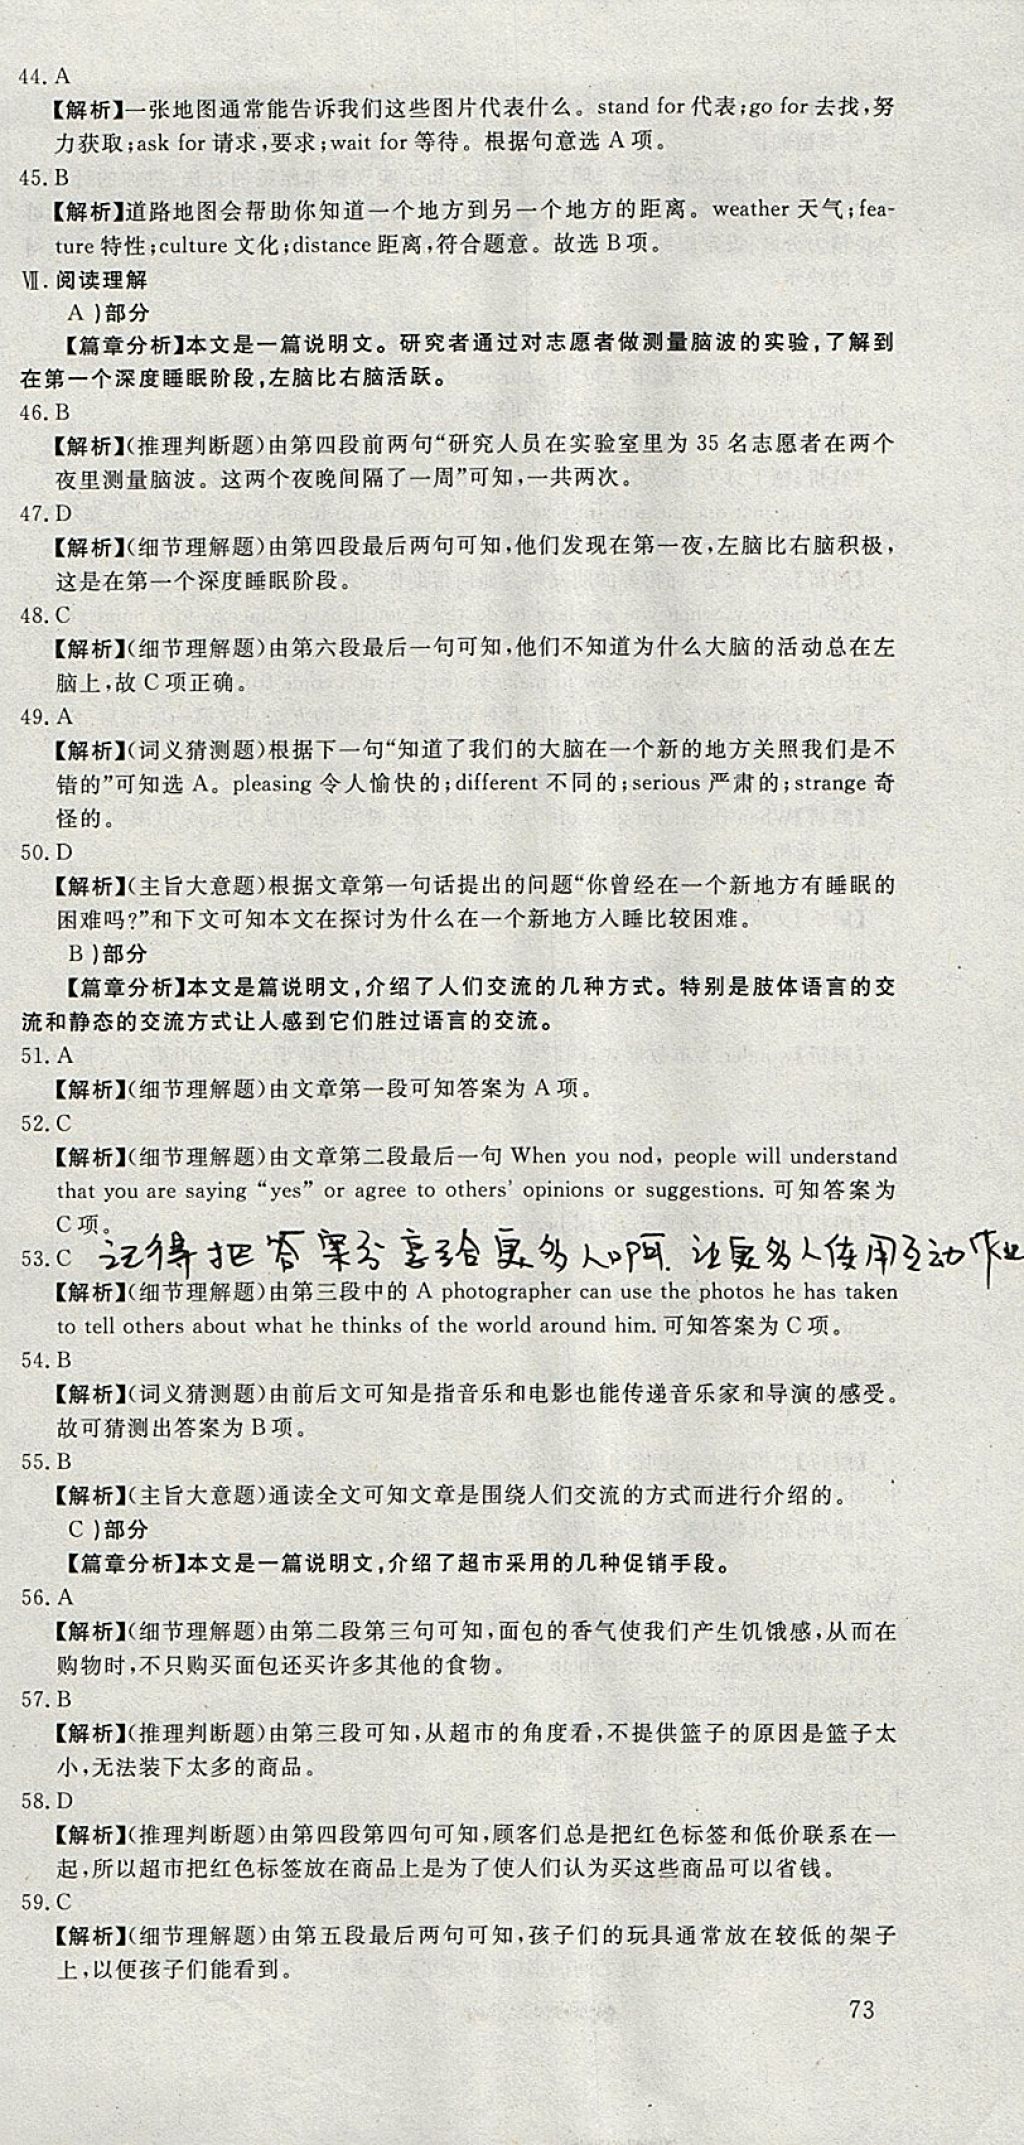 44. A
【解析】一张地图通常能告诉我们这些图片代表什么。stand for 代表;go for 去找,努
力获取;ask for 请求,要求;wait for 等待。根据句意选 A 项。
45. B
【解析】道路地图会帮助你知道一个地方到另一个地方的距离。weather 天气;fea-
ture 特性;culture 文化;distance 距离,符合题意。故选 B 项。
Ⅶ. 阅读理解
A )部分
【篇章分析】本文是一篇说明文。研究者通过对志愿者做测量脑波的实验,了解到
在第一个深度睡眠阶段,左脑比右脑活跃。
46. B
【解析】(推理判断题)由第四段前两句“研究人员在实验室里为 35 名志愿者在两个
夜里测量脑波。这两个夜晚间隔了一周”可知,一共两次。
47. D
【解析】(细节理解题)由第四段最后两句可知,他们发现在第一夜,左脑比右脑积极,
这是在第一个深度睡眠阶段。
48. C
【解析】(细节理解题)由第六段最后一句可知,他们不知道为什么大脑的活动总在左
脑上,故 C 项正确。
49. A
【解析】(词义猜测题)根据下一句“知道了我们的大脑在一个新的地方关照我们是不
错的”可知选 A。pleasing 令人愉快的;different 不同的;serious 严肃的;strange 奇
怪的。
50. D
【解析】(主旨大意题)根据文章第一句话提出的问题“你曾经在一个新地方有睡眠的
困难吗?”和下文可知本文在探讨为什么在一个新地方入睡比较困难。
B )部分
【篇章分析】本文是篇说明文,介绍了人们交流的几种方式。特别是肢体语言的交
流和静态的交流方式让人感到它们胜过语言的交流。
51. A
【解析】(细节理解题)由文章第一段可知答案为 A 项。
52. C
【解析】(细节理解题)由文章第二段最后一句 When you nod, people will understand
that you are saying “yes” or agree to others’ opinions or suggestions. 可知答案为
C 项。
53. C 记得把答案分享给更多人啊,让更多人使用互动作业
【解析】(细节理解题)由第三段中的 A photographer can use the photos he has taken
to tell others about what he thinks of the world around him. 可知答案为 C 项。
54. B
【解析】(词义猜测题)由前后文可知是指音乐和电影也能传递音乐家和导演的感受。
故可猜测出答案为 B 项。
55. B
【解析】(主旨大意题)通读全文可知文章是围绕人们交流的方式而进行介绍的。
C )部分
【篇章分析】本文是一篇说明文,介绍了超市采用的几种促销手段。
56. A
【解析】(细节理解题)由第二段第三句可知,面包的香气使我们产生饥饿感,从而在
购物时,不只购买面包还买许多其他的食物。
57. B
【解析】(推理判断题)由第三段可知,从超市的角度看,不提供篮子的原因是篮子太
小,无法装下太多的商品。
58. D
【解析】(推理判断题)由第四段第四句可知,顾客们总是把红色标签和低价联系在一
起,所以超市把红色标签放在商品上是为了使人们认为买这些商品可以省钱。
59. C
【解析】(细节理解题)由第五段最后两句可知,孩子们的玩具通常放在较低的架子
上,以便孩子们能看到。
73